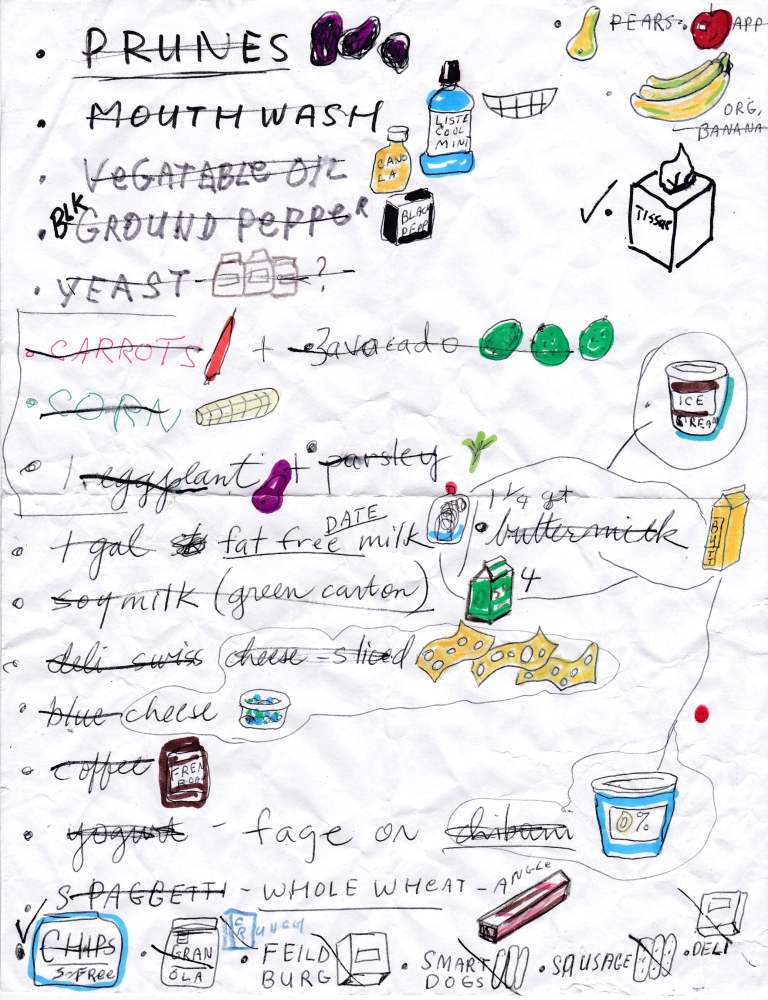 PRUNES
PEARS
APP
MOUTHWASH
LISTE
COOL
MINT
ORG,
BANANA
VEGATABLE OIL
CANO
LA
BLK
GROUND PEPPER
BLAC
PEPP
TISSUE
YEAST ?
CARROTS + 3 avocado
CORN
ICE
CREAM
1 eggplant + parsley
1 gal fat free milk
DATE
1 1/4 qt
buttermilk
BUTT
soy milk (green carton) 4
deli swiss cheese - sliced
blue cheese
coffee
FREN
yogurt - fage or chibani
0%
SPAGGETTI - WHOLE WHEAT - ANGLE
CHIPS
S-FREE
GRAN
OLA
CRUNCH
FEILD
BURG
SMART
DOGS
SAUSAGE
DELI